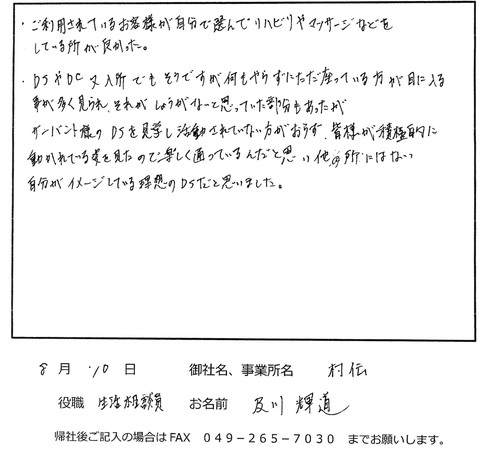 ・ご利用されているお客様が自分で選んでリハビリやマッサージなどを
している所が良かった。
・DSやDC又入所でもそうですが何もやらずにただ座っている方が目に入る
事が多く見られ、それがしょうがないと思っていた部分もあったが
サーバント様のDSを見学し活動されていない方がおらず、皆様が積極的に
動かれている姿を見たので楽しく通っているんだと思い他の所にはない
自分がイメージしている理想のDSだと思いました。
8 月 10 日 御社名、事業所名 村伝
役職 生活相談員 お名前 及川 輝道
帰社後ご記入の場合は FAX 049－265－7030 までお願いします。